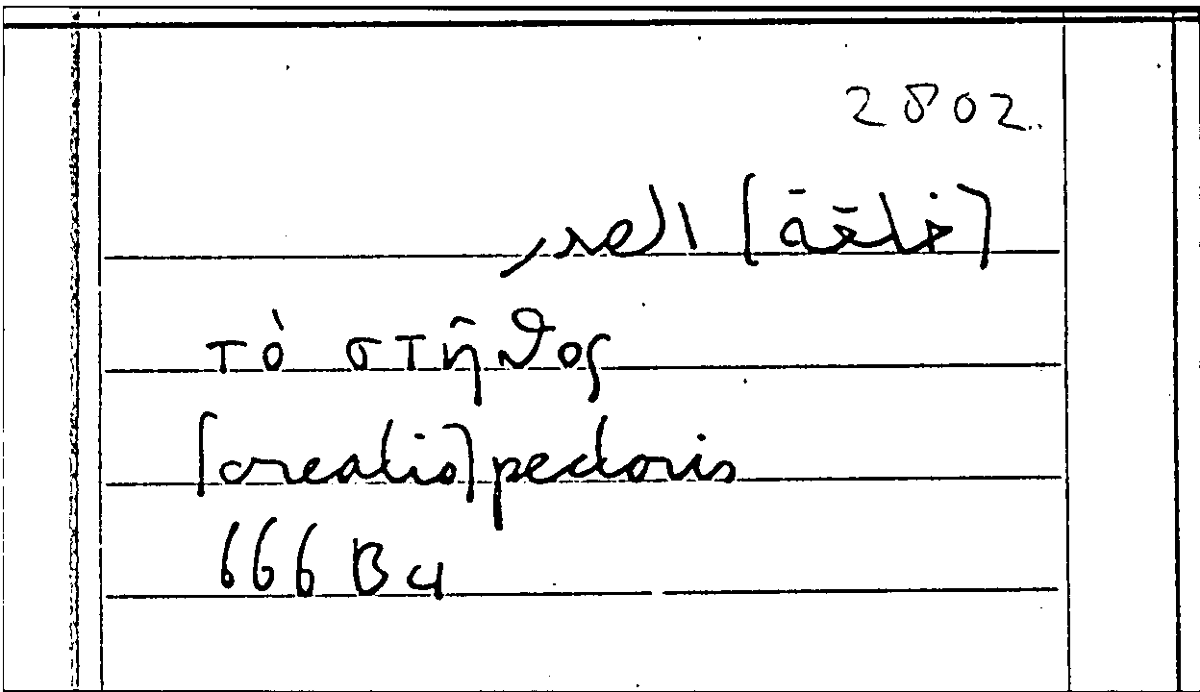 2802.
[خلقة] الصدر
τὸ στῆθος
[creatio] pectoris
666 B 4